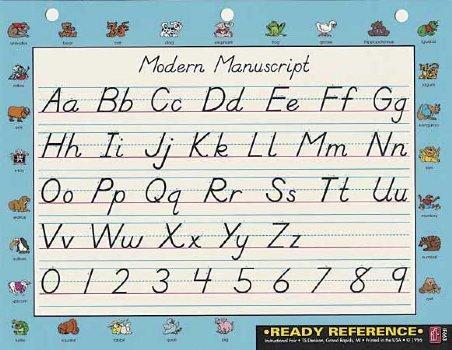 alligator bear cat dog elephant frog goose hippopotamus iguana
Modern Manuscript
Aa Bb Cc Dd Ee Ff Gg
Hh Ii Jj Kk Ll Mm Nn
Oo Pp Qq Rr Ss Tt Uu
Vv Ww Xx Yy Zz
0 1 2 3 4 5 6 7 8 9
zebra
yak
fox
walrus
vulture
unicorn
jaguar
kangaroo
lion
monkey
numbat
owl
turtle squirrel rabbit quail pig
•READY REFERENCE•
Instructional Fair • TS Denison, Grand Rapids, MI • Printed in the USA • © 1996